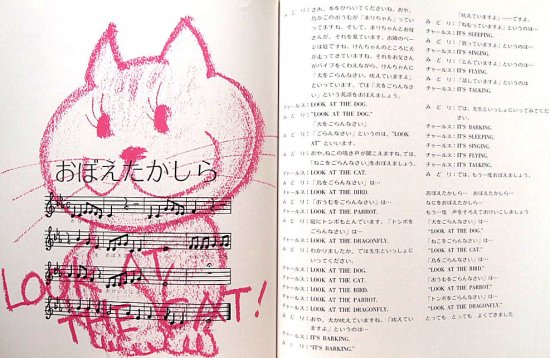 おぼえたかしら
LOOK AT
THE CAT!
みどり：さあ、本をひらいてください。おや、
ていますよ」という英語をおぼえましょう。
チャールス：LOOK AT THE DOG.
みどり："LOOK AT THE DOG."
「犬をごらんなさい」
みどり：「ごらんなさい」というのは、"LOOK
AT" といいます。
みどり：おや、ねこの鳴き声が聞こえますね。では、
「ねこをごらんなさい」をおぼえましょう。
チャールス：LOOK AT THE CAT.
みどり：「鳥をごらんなさい」は…
チャールス：LOOK AT THE BIRD.
みどり：「おうむをごらんなさい」は…
チャールス：LOOK AT THE PARROT.
みどり：庭にトンボもとんでいます。「トンボを
ごらんなさい」は…
チャールス：LOOK AT THE DRAGONFLY.
みどり：わかりましたか。では先生といっしょに
いってください。
チャールス：LOOK AT THE DOG.
チャールス：LOOK AT THE CAT.
チャールス：LOOK AT THE BIRD.
チャールス：LOOK AT THE PARROT.
チャールス：LOOK AT THE DRAGONFLY.
みどり：おや、犬が吠えていますね。「吠えてい
ますよ」というのは…
チャールス：IT'S BARKING.
みどり："IT'S BARKING."
「吠えていますよ」……ですよ。
みどり：「ねむっていますよ」というのは…
チャールス：IT'S SLEEPING.
みどり：「歌っていますよ」というのは…
チャールス：IT'S SINGING.
みどり：「とんでいますよ」というのは…
チャールス：IT'S FLYING.
みどり：「話していますよ」というのは…
チャールス：IT'S TALKING
みどり：では、先生といっしょにいってみてくだ
さい。
チャールス：IT'S BARKING.
チャールス：IT'S SLEEPING.
チャールス：IT'S SINGING.
チャールス：IT'S FLYING.
チャールス：IT'S TALKING.
みどり：では、もう一度おぼえましょう。
おぼえたかしら　おぼえたかしら
なにをおぼえたかしら…
もう一度　声をそろえておけいこしましょう
「犬をごらんなさい」は…
"LOOK AT THE DOG."
「ねこをごらんなさい」は…
"LOOK AT THE CAT."
「鳥をごらんなさい」は…
"LOOK AT THE BIRD."
「おうむをごらんなさい」は…
"LOOK AT THE PARROT."
「トンボをごらんなさい」は…
"LOOK AT THE DRAGONFLY."
とっても　とっても　よくできました